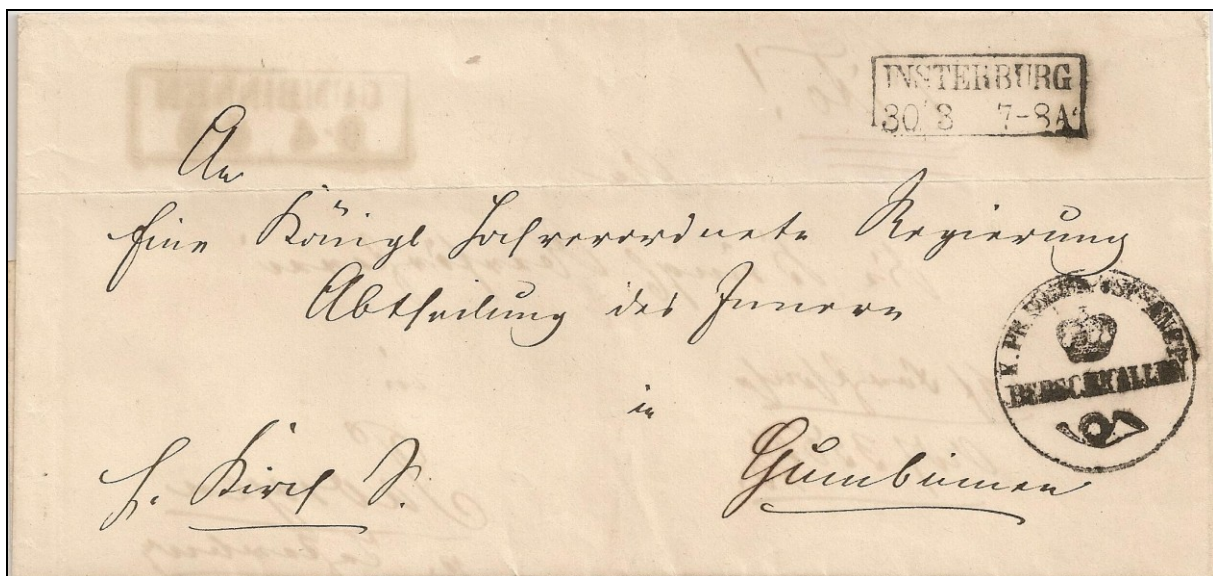 INSTERBURG
30 3 7-8A
An
Eine Königl Hochverordnete Regierung
Abtheilung des Innern
in
Gumbinnen
H. Kirch S.
K. PR. POST
BERSCHKALLEN
GUMBINNEN